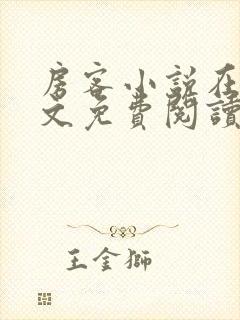 房客小説在
文免費閱讀
王金獅